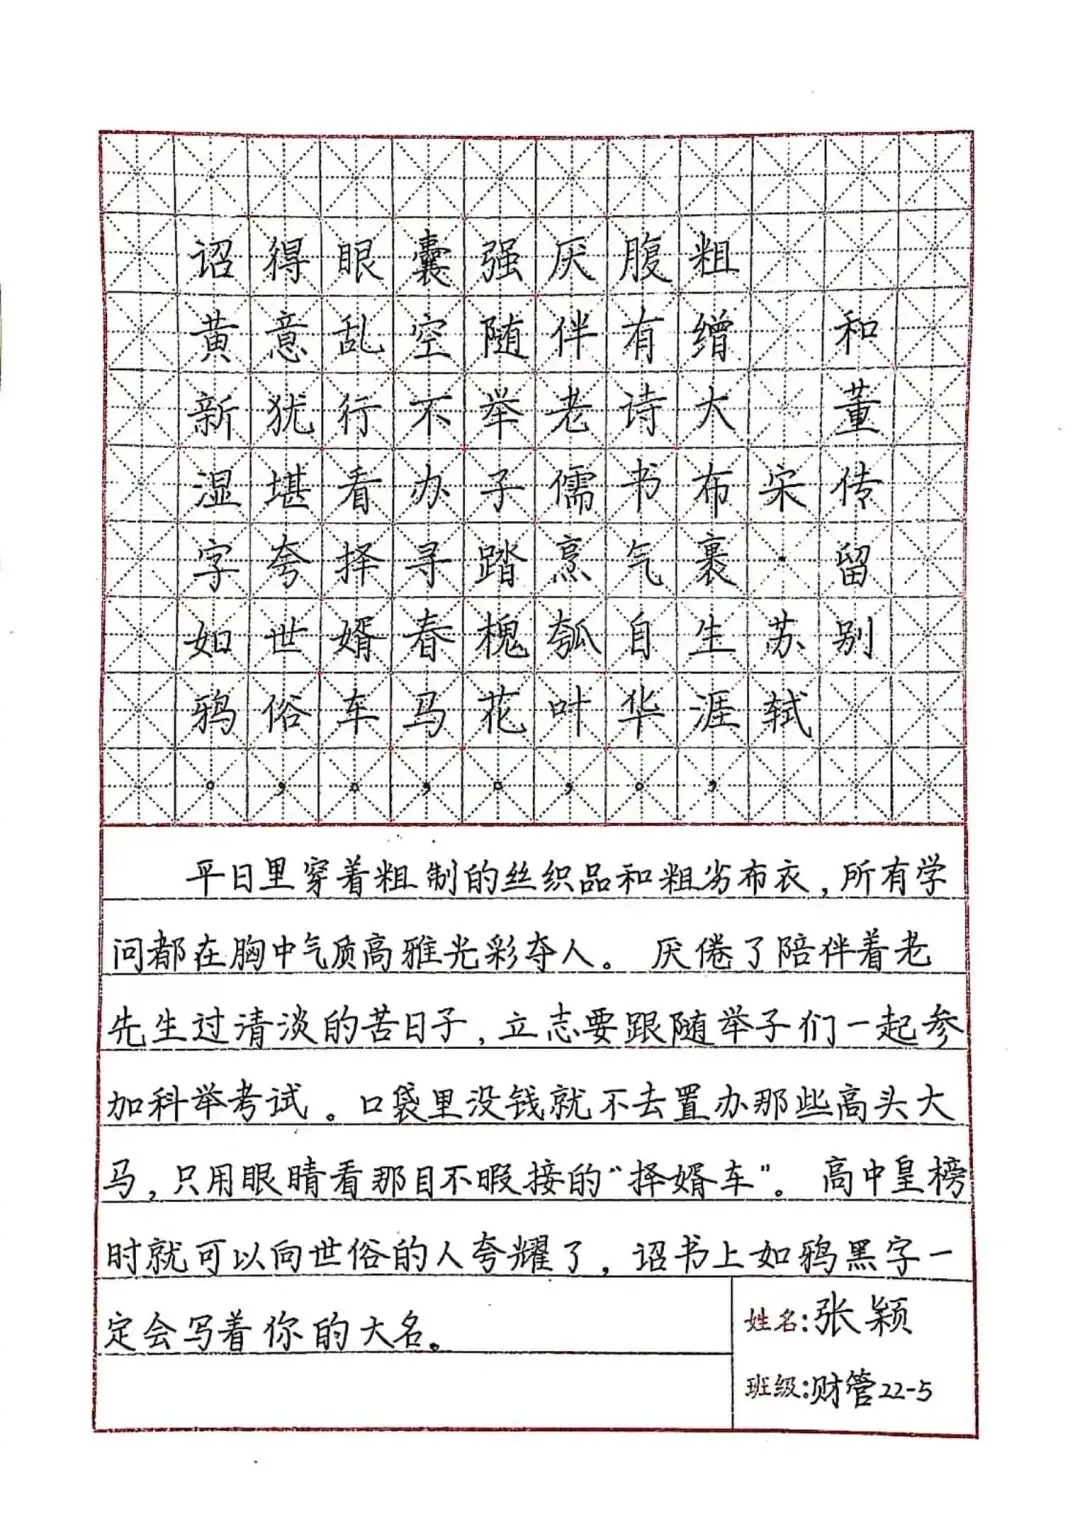 和董传留别
宋·苏轼
粗缯大布裹生涯，
腹有诗书气自华。
厌伴老儒烹瓠叶，
强随举子踏槐花。
囊空不办寻春马，
眼乱行看择婿车。
得意犹堪夸世俗，
诏黄新湿字如鸦。
平日里穿着粗制的丝织品和粗劣布衣，所有学
问都在胸中气质高雅光彩夺人。厌倦了陪伴着老
先生过清淡的苦日子，立志要跟随举子们一起参
加科举考试。口袋里没钱就不去置办那些高头大
马，只用眼睛看那目不暇接的“择婿车”。高中皇榜
时就可以向世俗的人夸耀了，诏书上如鸦黑字一
定会写着你的大名。
姓名:张颖
班级:财管22-5